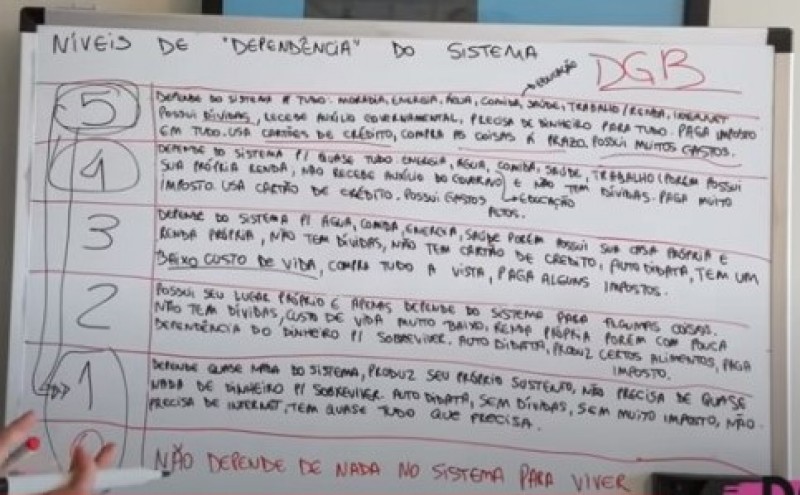 NÍVEIS DE "DEPENDÊNCIA" DO SISTEMA
EDUCAÇÃO
DGB
5
DEPENDE DO SISTEMA P/ TUDO: MORADIA, ENERGIA, ÁGUA, COMIDA, SAÚDE, TRABALHO/RENDA, INTERNET
POSSUI DÍVIDAS, RECEBE AUXÍLIO GOVERNAMENTAL, PRECISA DE DINHEIRO PARA TUDO. PAGA IMPOSTO
EM TUDO. USA CARTÕES DE CRÉDITO, COMPRA AS COISAS À PRAZO. POSSUI MUITOS GASTOS.
4
DEPENDE DO SISTEMA P/ QUASE TUDO: ENERGIA, ÁGUA, COMIDA, SAÚDE, TRABALHO (PORÉM POSSUI
SUA PRÓPRIA RENDA, NÃO RECEBE AUXÍLIO DO GOVERNO) E NÃO TEM DÍVIDAS. PAGA MUITO
IMPOSTO. USA CARTÃO DE CRÉDITO. POSSUI GASTOS EDUCAÇÃO
ALTOS.
3
DEPENDE DO SISTEMA P/ ÁGUA, COMIDA, ENERGIA, SAÚDE PORÉM POSSUI SUA CASA PRÓPRIA E
RENDA PRÓPRIA, NÃO TEM DÍVIDAS, NÃO TEM CARTÃO DE CRÉDITO, AUTO DIDATA, TEM UM
BAIXO CUSTO DE VIDA, COMPRA TUDO A VISTA, PAGA ALGUNS IMPOSTOS.
2
POSSUI SEU LUGAR PRÓPRIO E APENAS DEPENDE DO SISTEMA PARA ALGUMAS COISAS.
NÃO TEM DÍVIDAS, CUSTO DE VIDA MUITO BAIXO, RENDA PRÓPRIA PORÉM COM POUCA
DEPENDÊNCIA DO DINHEIRO P/ SOBREVIVER. AUTO DIDATA, PRODUZ CERTOS ALIMENTOS, PAGA
IMPOSTO.
1
DEPENDE QUASE NADA DO SISTEMA, PRODUZ SEU PRÓPRIO SUSTENTO, NÃO PRECISA DE QUASE
NADA DE DINHEIRO P/ SOBREVIVER. AUTO DIDATA, SEM DÍVIDAS, SEM MUITO IMPOSTO, NÃO
PRECISA DE INTERNET, TEM QUASE TUDO QUE PRECISA.
NÃO DEPENDE DE NADA NO SISTEMA PARA VIVER